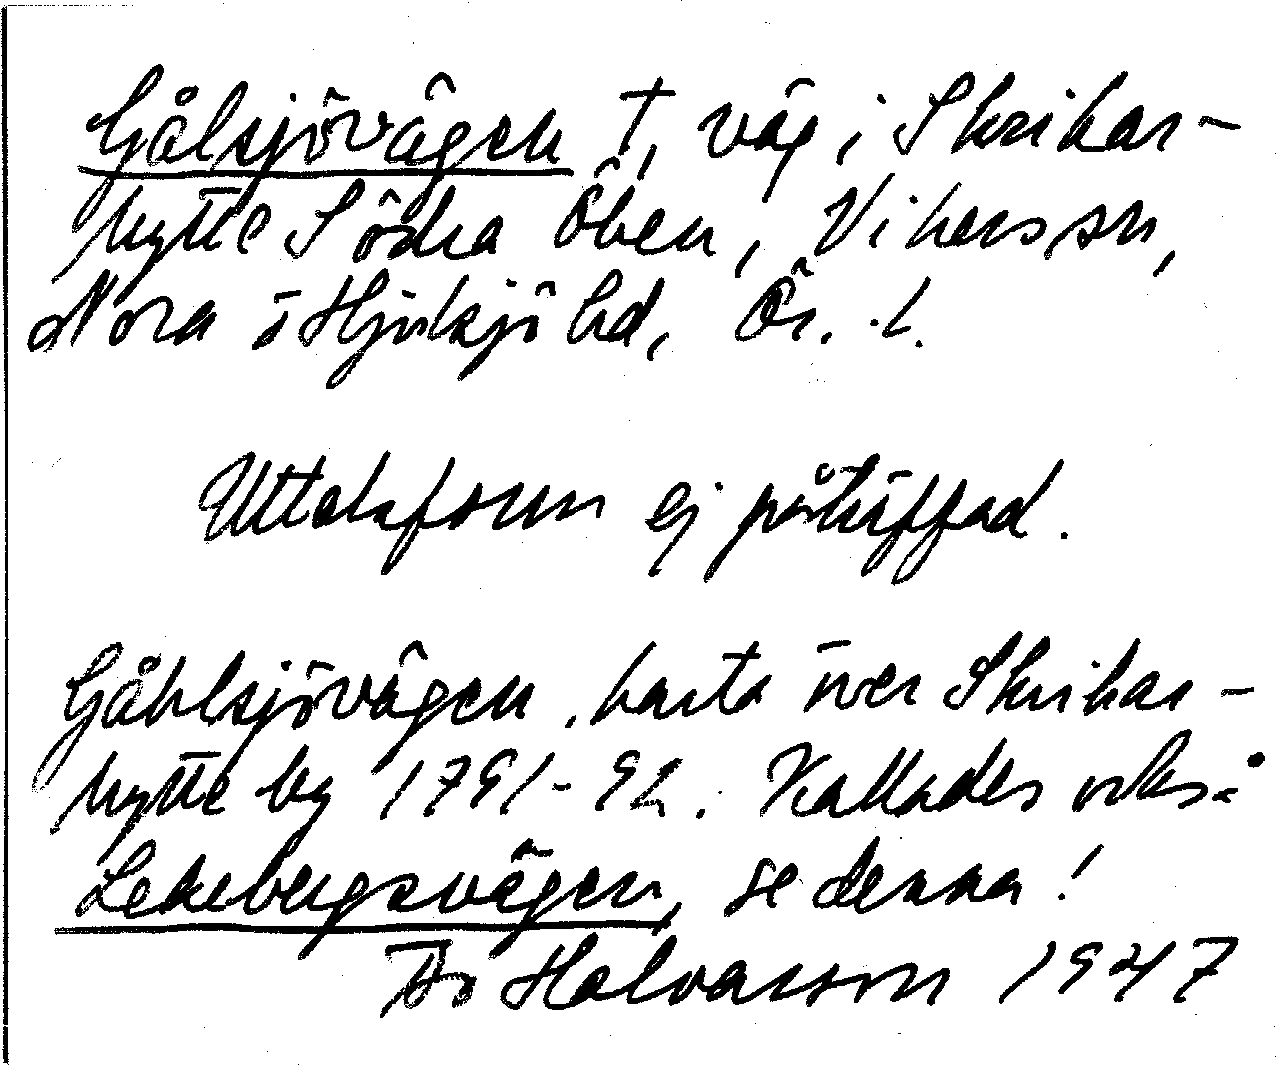 Gålsjövägen †, väg i Skrikar-
hytte Södra Öben, Vikers sn,
Nora ö Hjulsjö bd, Ör. l.
Uttalsform ej påträffad.
Gåhlsjövägen, karta över Skrikar-
hytte by 1791-92. Kallades också
Lekebergsvägen, se denna!
Bo Halvarsson 1947